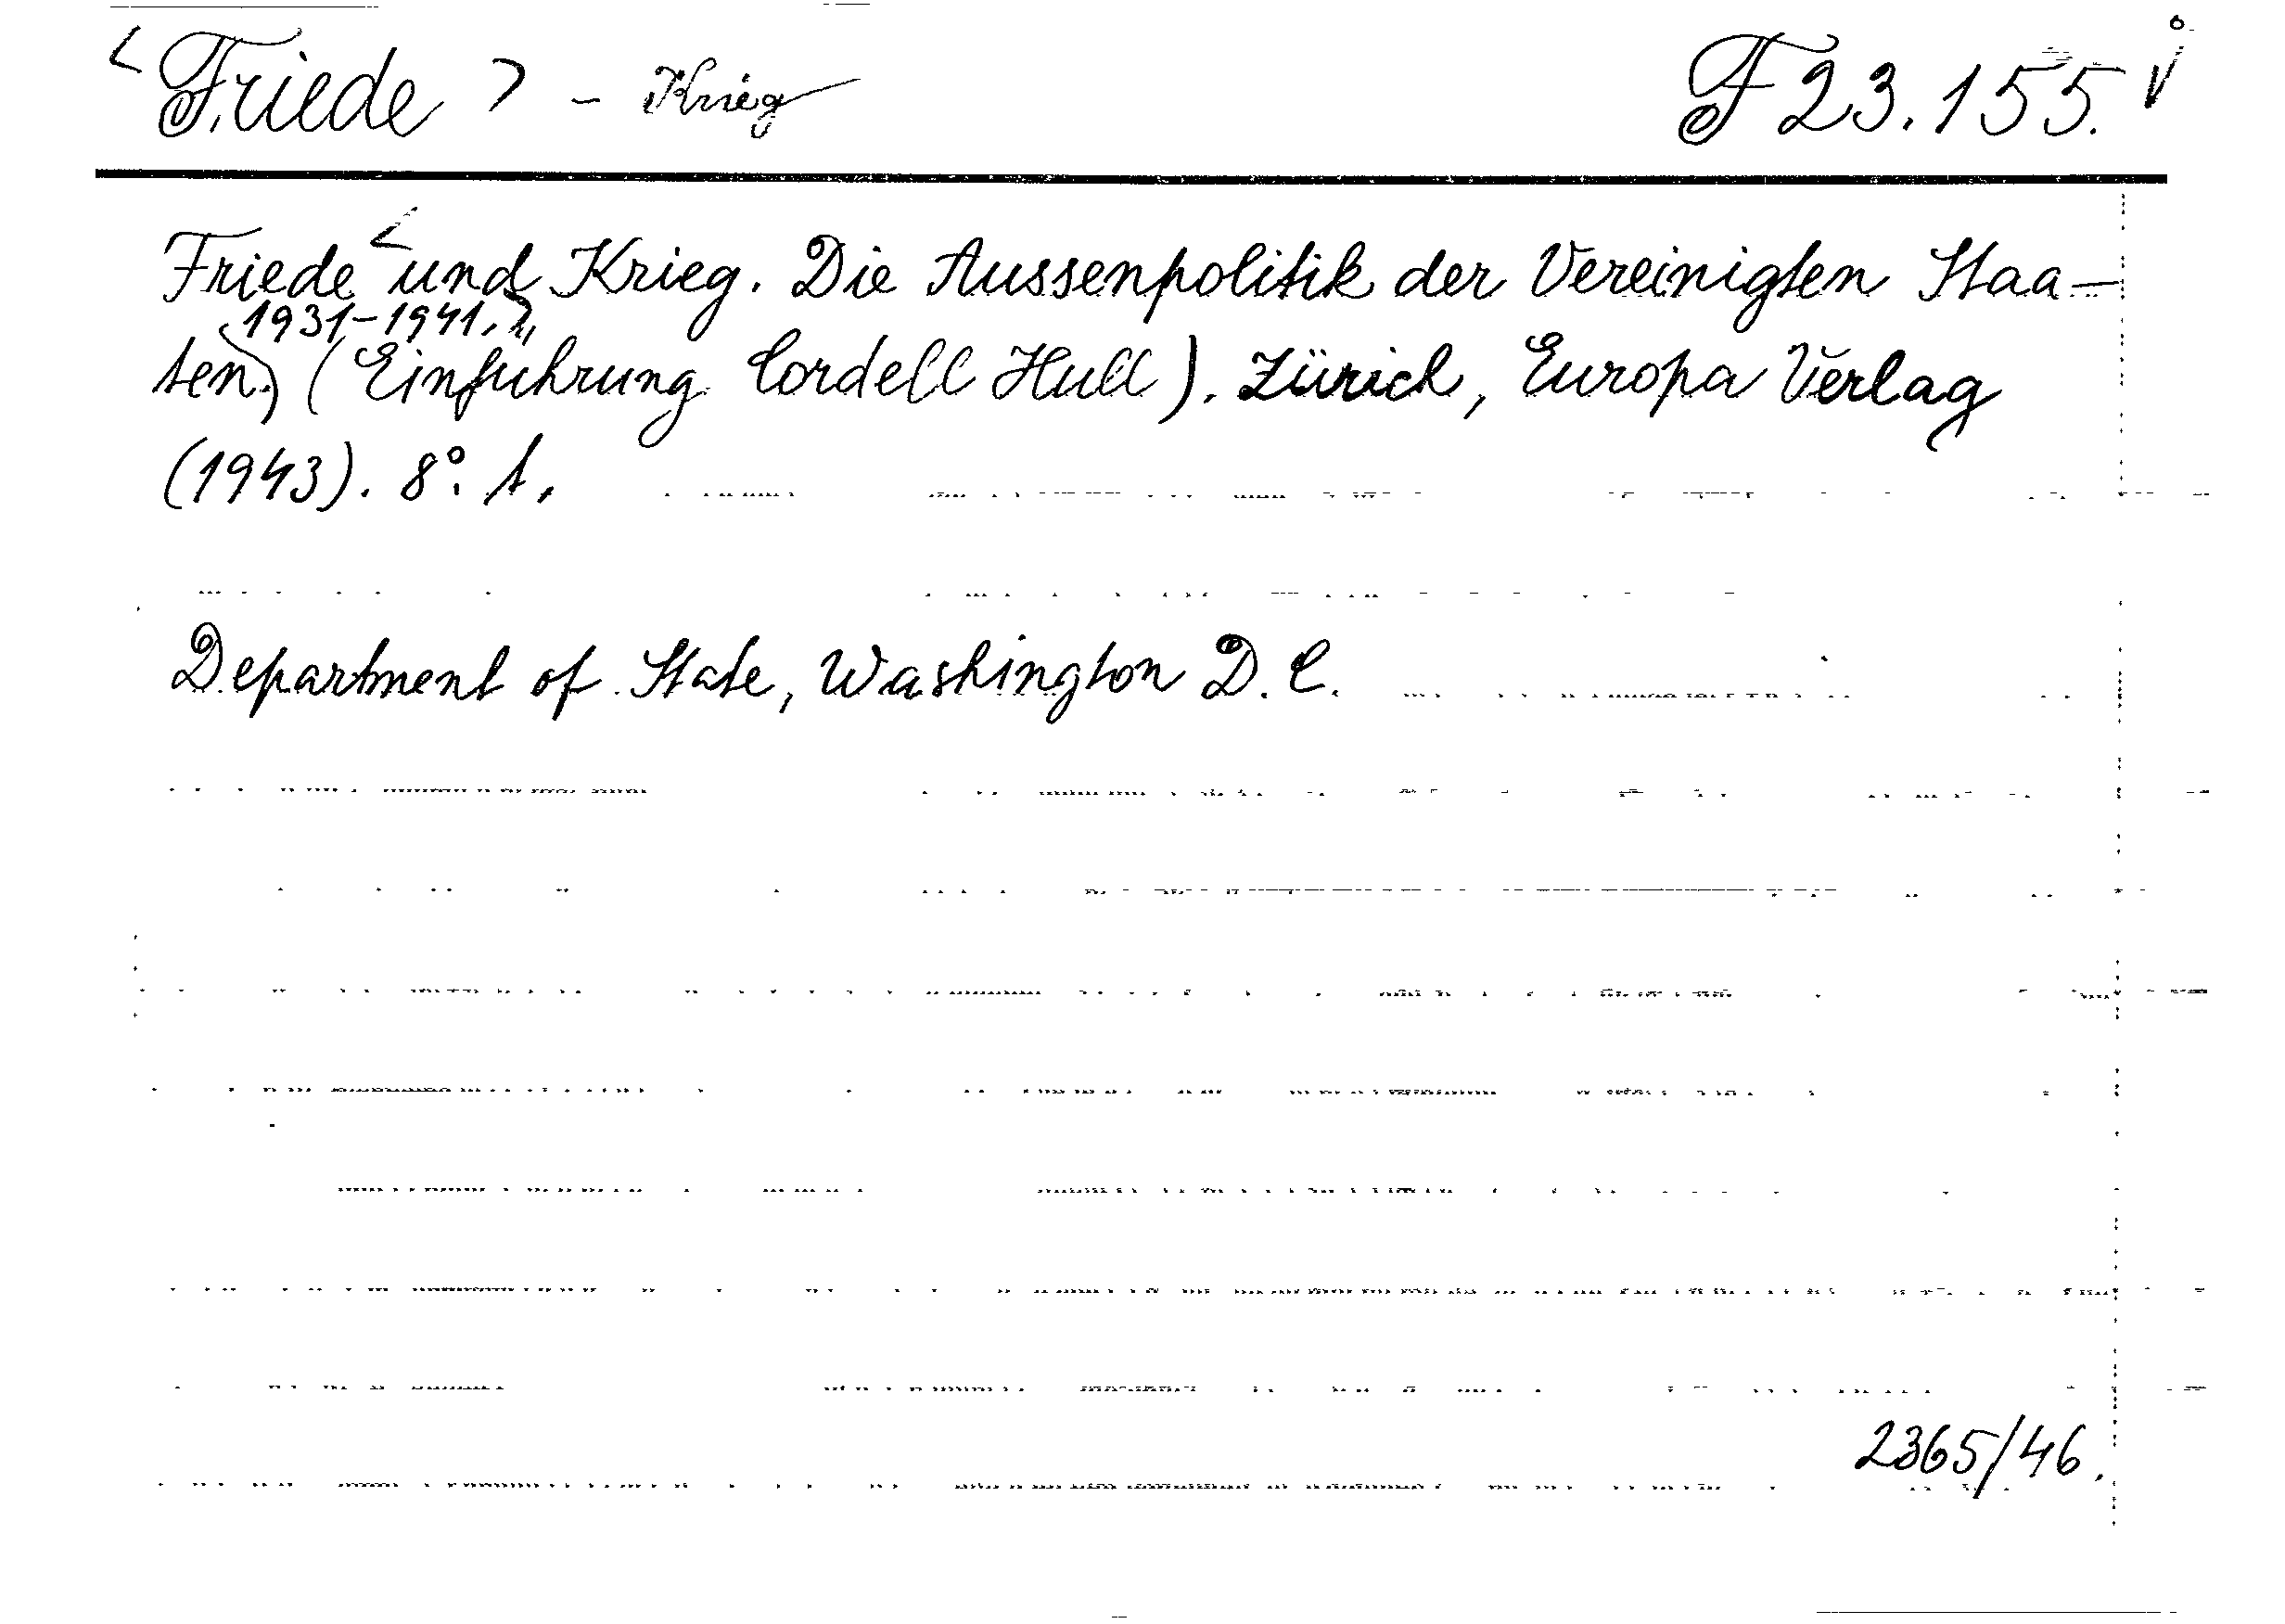 <Friede> - Krieg F 23.155.
Friede < und Krieg. Die Aussenpolitik der Vereinigten Staa-
1931-1941.>
ten. (Einfuhrung Cordell Hull). Zürich, Europa Verlag
(1943). 8°.
Department of State, Washington D.C.
2365/46.